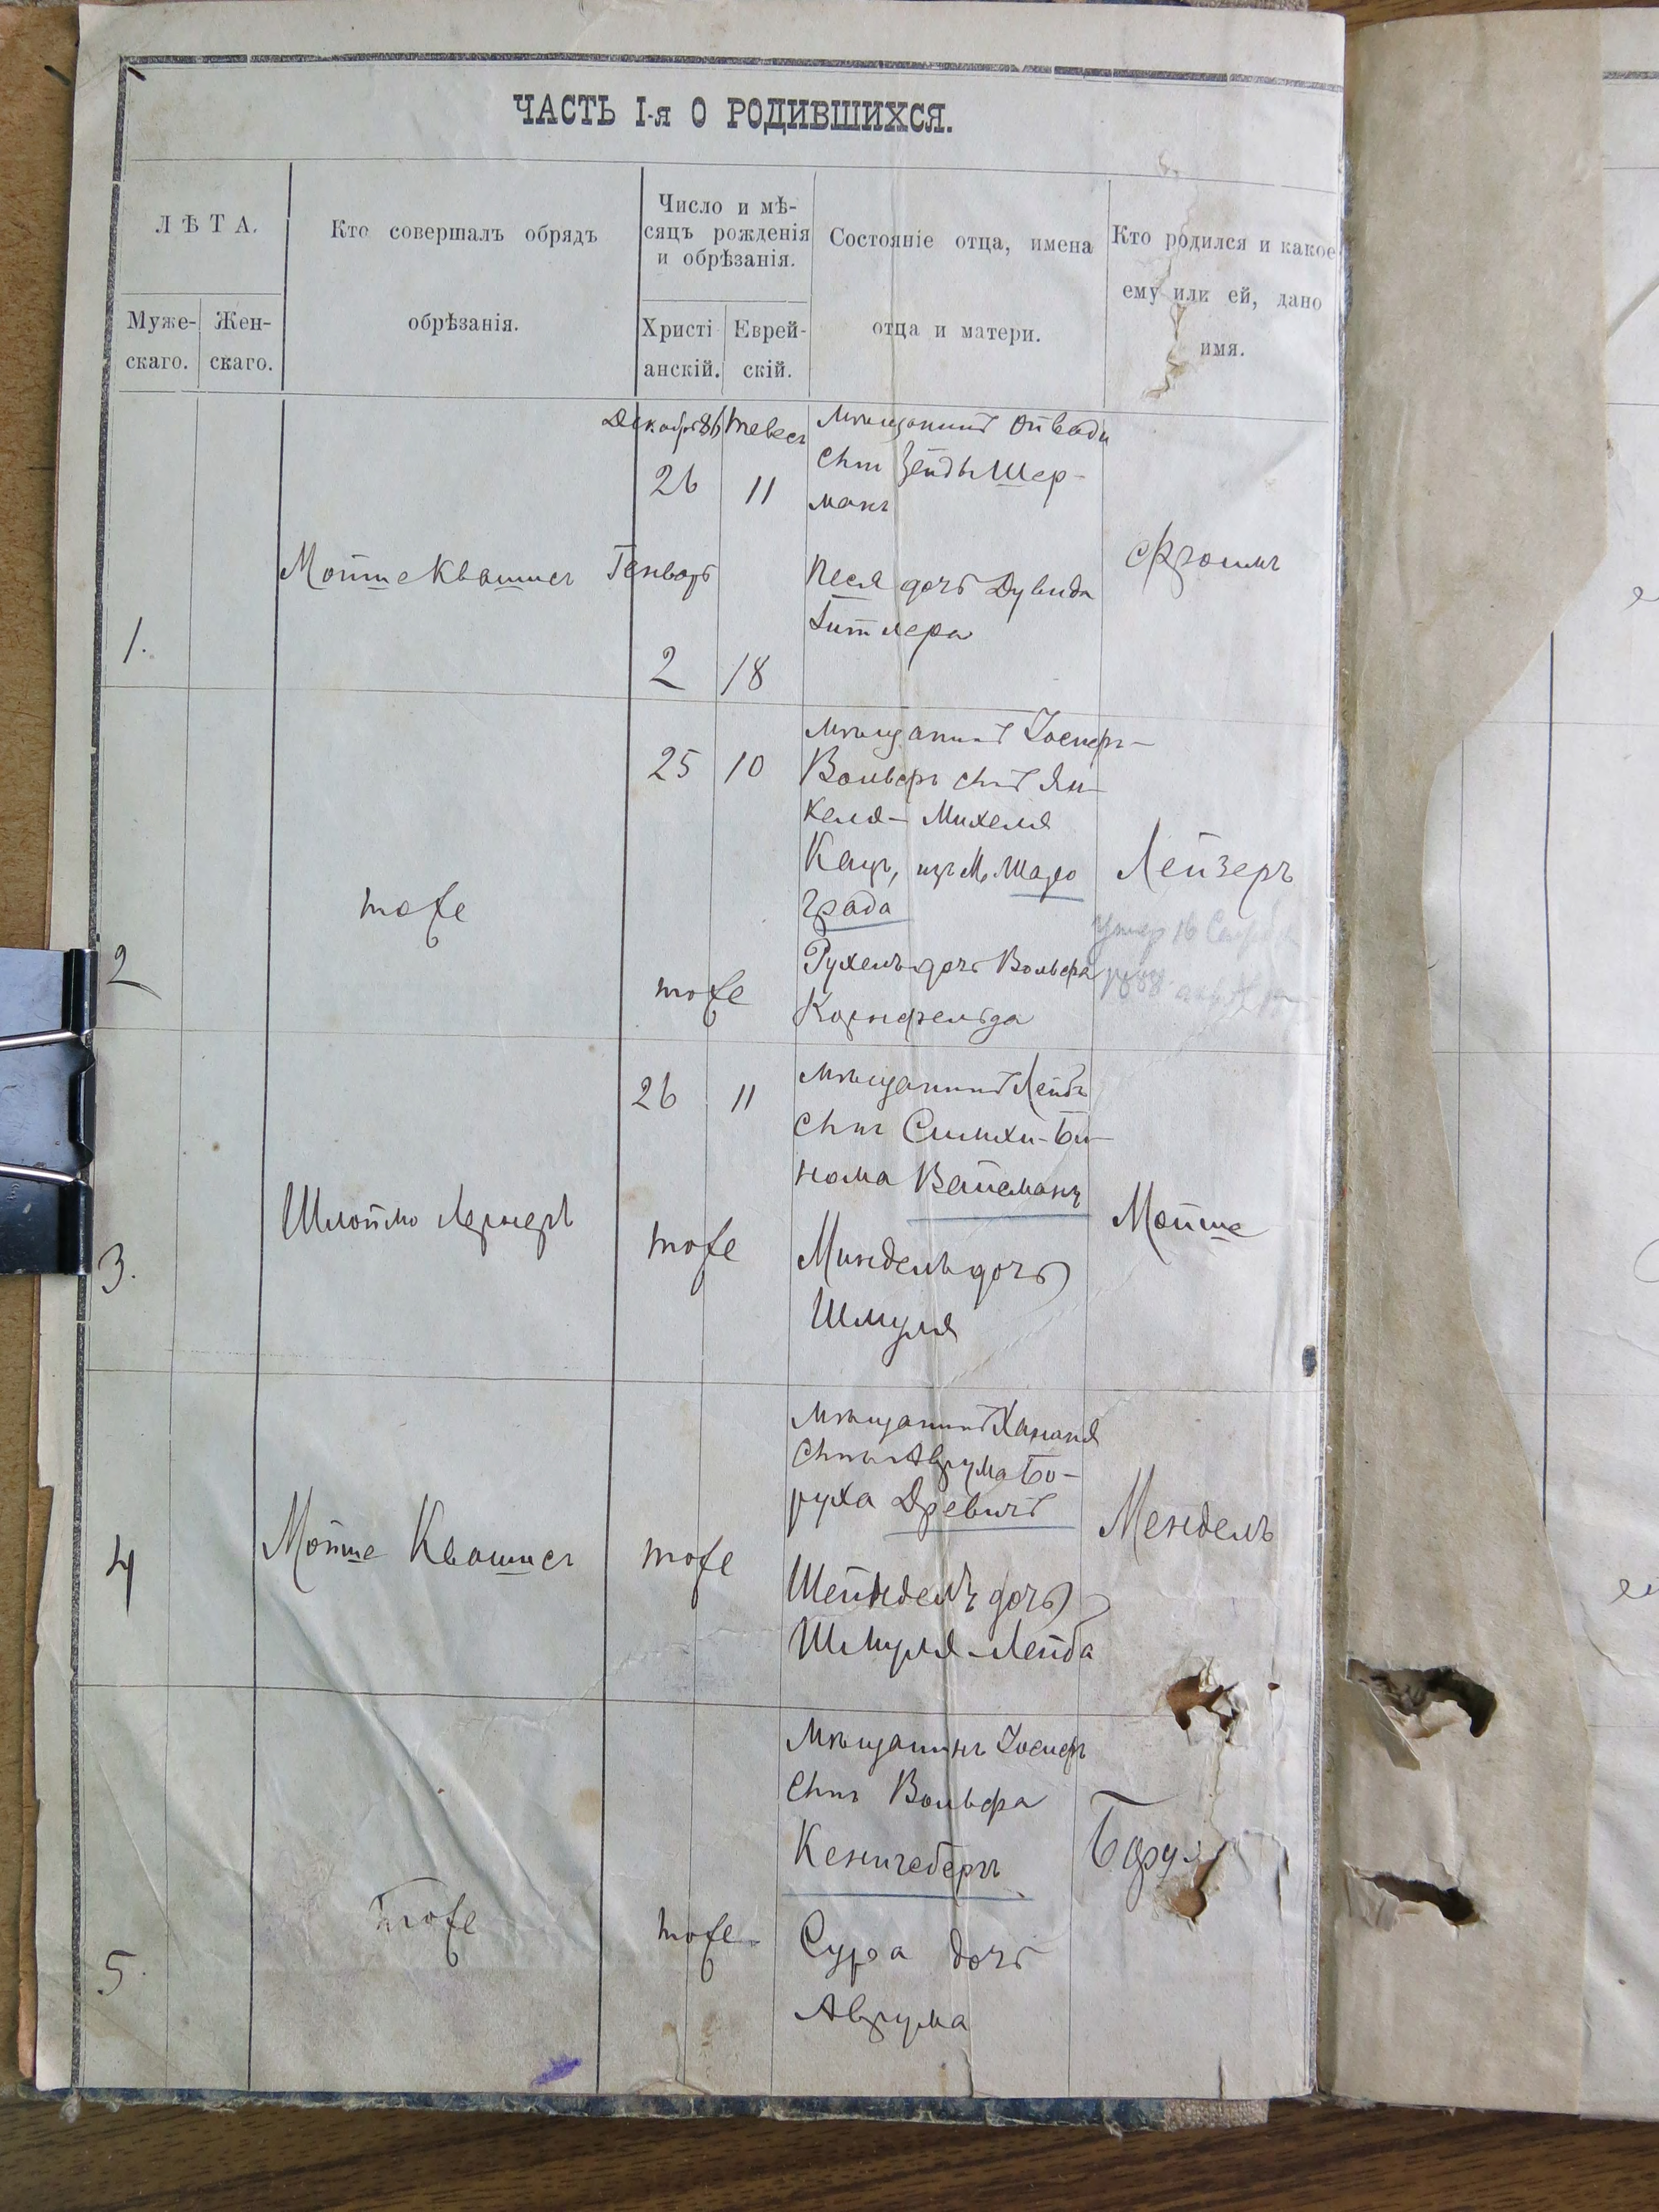 ЧАСТЬ I-я О РОДИВШИХСЯ.
ЛѢТА.
Муже-
скаго.
Жен-
скаго.
Кто совершалъ обрядъ
обрѣзанія.
Число и мѣ-
сяцъ рожденія
и обрѣзанія.
Христі
анскій.
Еврей-
скій.
Состояніе отца, имена
отца и матери.
Кто родился и какое
ему или ей, дано
имя.
1.
Мойше Квашисъ
Декабрь 86
26
Генварь
2
Тевесъ
11
18
Мѣщанинъ
сынъ Зейды Шер-
манъ
Песя дочь Дувида
Гитлера
Фроимъ
2
тоже
25
10
тоже
Мѣщанинъ Іосифъ-
Вольфъ сынъ Ян-
келя-Михеля
Кацъ, изъ М. Шаро
града
Рухель дочь Вольфа
Корнфельда
Лейзеръ
умер 16
3.
Шлоймо Лернеръ
26
11
тоже
Мѣщанинъ Лейбъ
сынъ Симхи-Би-
нома Вайсманъ
Миндель дочь
Шмуля
Мойше
4
Мойше Квашисъ
тоже
Мѣщанинъ Хананя
сынъ Аврума Бо-
руха Древичъ
Шейндель дочь
Шмуля-Лейба
Мендель
5.
тоже
тоже
Мѣщанинъ Іосифъ
сынъ Вольфа
Кенигсбергъ
Сура дочь
Аврума